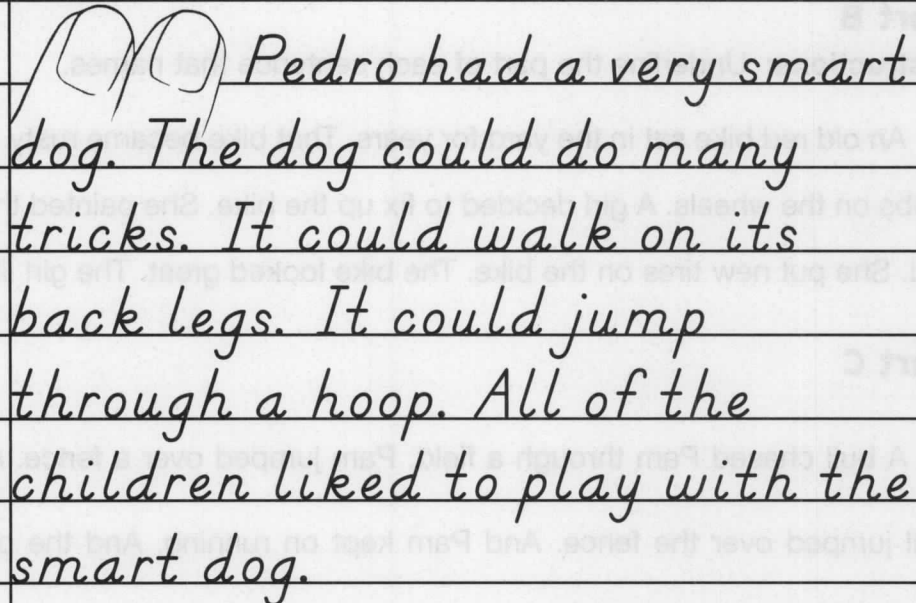 Pedro had a very smart
dog. The dog could do many
tricks. It could walk on its
back legs. It could jump
through a hoop. All of the
children liked to play with the
smart dog.